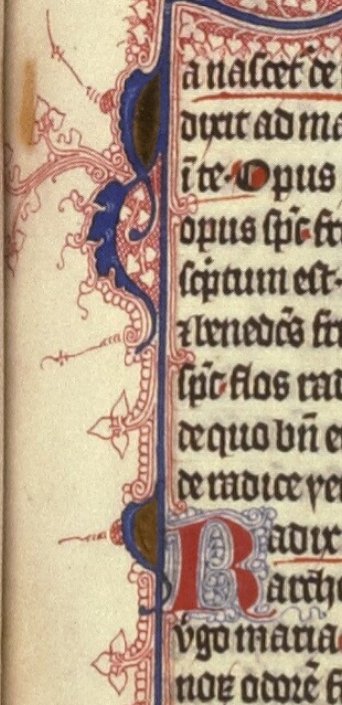 a nascet᷑ de
dixit ad ma
ī te· Opus
opus sp̄c· fr
sc̄ptum est·
⁊ benedc̄s fr
sp̄c· flos rad
de quo bn̄ e
de radice ve
Radix
arche
v̾go maria
nor odorē